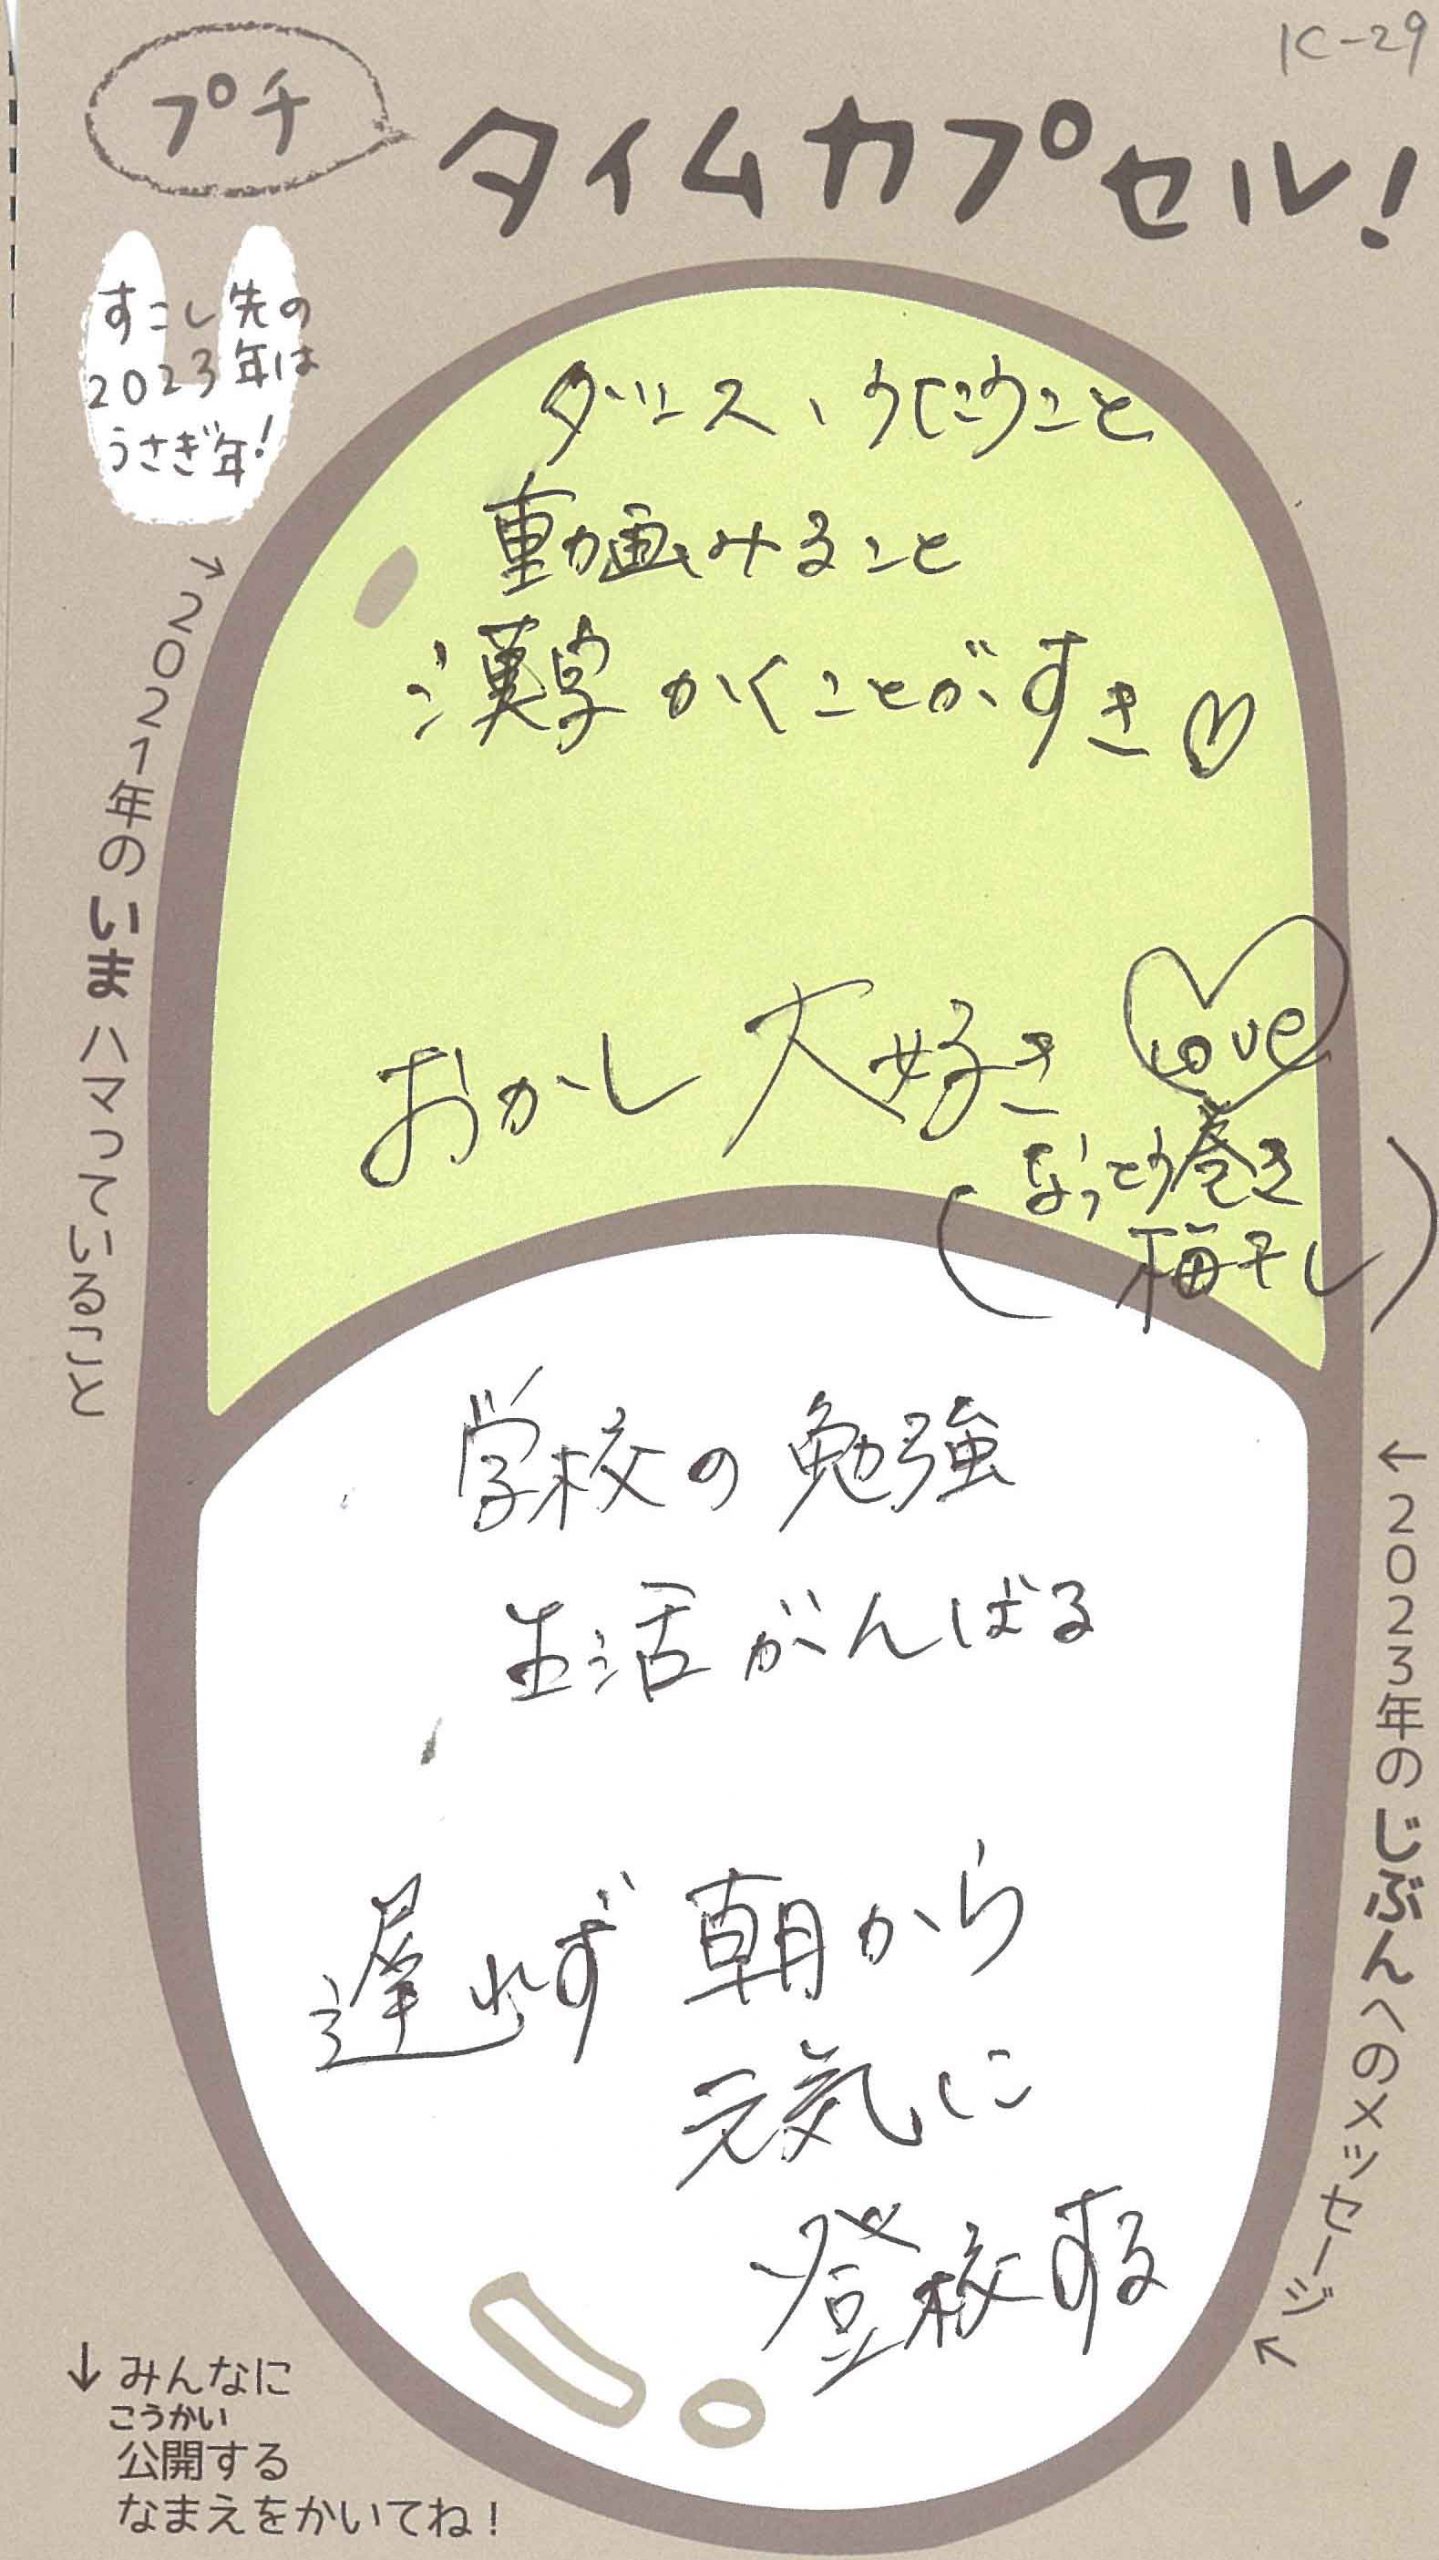 1C-29
プチ
タイムカプセル!
すこし先の
2023年は
うさぎ年!
→2021年のいまハマっていること
ダンス、うたうこと
動画みること
漢字かくことがすき♡
おかし大好き
Love
(なっとう巻き
梅干し)
←2023年のじぶんへのメッセージ←
学校の勉強
生活がんばる
遅れず朝から
元気に
登校する
↓みんなに
こうかい
公開する
なまえをかいてね!